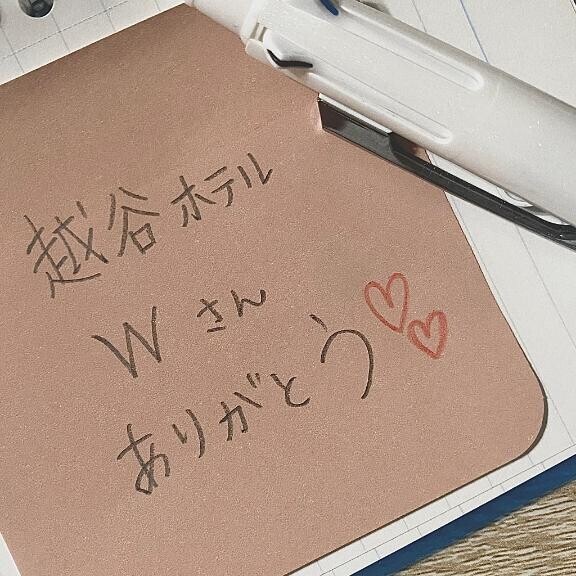 越谷ホテル
Wさん
ありがとう♡♡